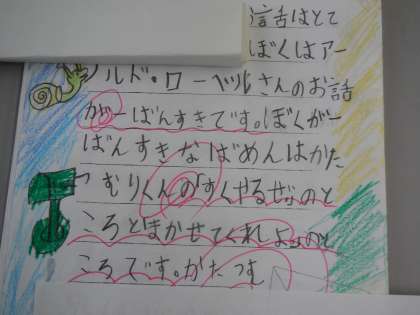 話はとて
ぼくはアー
ノルド・ローベルさんのお話
が一ばんすきです。ぼくが一
ばんすきなばめんはかた
つむりくんの「すぐやるぜ」のと
ころと「まかせてくれよ」のと
ころです。かたつむ